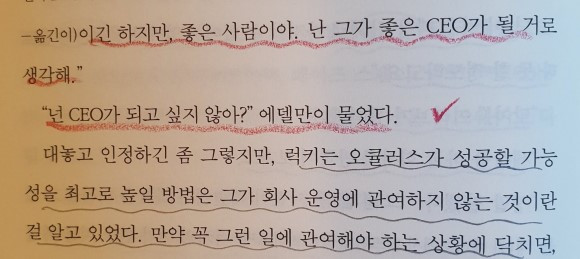 -옮긴이)이긴 하지만, 좋은 사람이야. 난 그가 좋은 CEO가 될 거로
생각해.”
“넌 CEO가 되고 싶지 않아?” 에델만이 물었다.
대놓고 인정하긴 좀 그렇지만, 럭키는 오큘러스가 성공할 가능
성을 최고로 높일 방법은 그가 회사 운영에 관여하지 않는 것이란
걸 알고 있었다. 만약 꼭 그런 일에 관여해야 하는 상황에 닥치면,